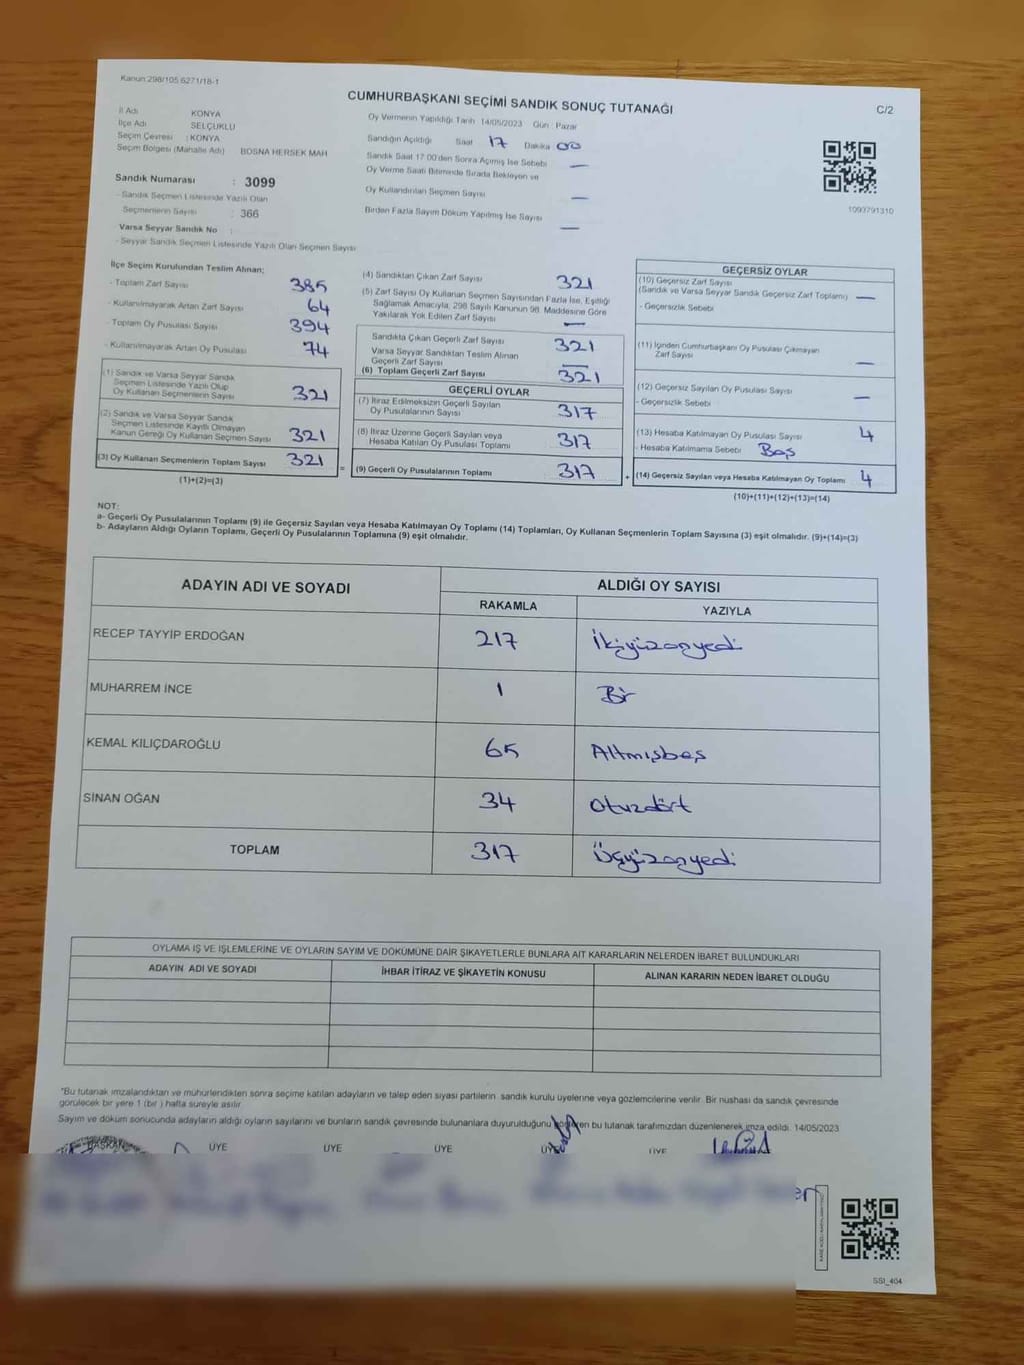 Kanun:298/105 6271/18-1
CUMHURBAŞKANI SEÇİMİ SANDIK SONUÇ TUTANAĞI
C/2
İl Adı KONYA
İlçe Adı SELÇUKLU
Seçim Çevresi : KONYA
Seçim Bölgesi (Mahalle Adı) BOSNA HERSEK MAH
Sandık Numarası : 3099
- Sandık Seçmen Listesinde Yazılı Olan
Seçmenlerin Sayısı : 366
Varsa Seyyar Sandık No :
- Seyyar Sandık Seçmen Listesinde Yazılı Olan Seçmen Sayısı
Oy Vermenin Yapıldığı Tarih 14/05/2023 Gün : Pazar
Sandığın Açıldığı Saat 17 Dakika 00
Sandık Saat 17:00'den Sonra Açımış İse Sebebi —
Oy Verme Saati Bitiminde Sırada Bekleyen ve
Oy Kullandırılan Seçmen Sayısı —
Birden Fazla Sayım Döküm Yapılmış İse Sayısı —
1093791310
İlçe Seçim Kurulundan Teslim Alınan;
- Toplam Zarf Sayısı 385
- Kullanılmayarak Artan Zarf Sayısı 64
- Toplam Oy Pusulası Sayısı 394
- Kullanılmayarak Artan Oy Pusulası 74
(1) Sandık ve Varsa Seyyar Sandık
Seçmen Listesinde Yazılı Olup
Oy Kullanan Seçmenlerin Sayısı 321
(2) Sandık ve Varsa Seyyar Sandık
Seçmen Listesinde Kayıtlı Olmayan
Kanun Gereği Oy Kullanan Seçmen Sayısı 321
(3) Oy Kullanan Seçmenlerin Toplam Sayısı 321
(1)+(2)=(3)
=
(4) Sandıktan Çıkan Zarf Sayısı 321
(5) Zarf Sayısı Oy Kullanan Seçmen Sayısından Fazla İse, Eşitliği
Sağlamak Amacıyla, 298 Sayılı Kanunun 98. Maddesine Göre
Yakılarak Yok Edilen Zarf Sayısı —
Sandıkta Çıkan Geçerli Zarf Sayısı 321
Varsa Seyyar Sandıktan Teslim Alınan
Geçerli Zarf Sayısı —
(6) Toplam Geçerli Zarf Sayısı 321
GEÇERLİ OYLAR
(7) İtiraz Edilmeksizin Geçerli Sayılan
Oy Pusulalarının Sayısı 317
(8) İtiraz Üzerine Geçerli Sayılan veya
Hesaba Katılan Oy Pusulası Toplamı 317
(9) Geçerli Oy Pusulalarının Toplamı 317
+
GEÇERSİZ OYLAR
(10) Geçersiz Zarf Sayısı
(Sandık ve Varsa Seyyar Sandık Geçersiz Zarf Toplamı) —
- Geçersizlik Sebebi
(11) İçinden Cumhurbaşkanı Oy Pusulası Çıkmayan
Zarf Sayısı —
(12) Geçersiz Sayılan Oy Pusulası Sayısı —
- Geçersizlik Sebebi
(13) Hesaba Katılmayan Oy Pusulası Sayısı 4
- Hesaba Katılmama Sebebi Boş
(14) Geçersiz Sayılan veya Hesaba Katılmayan Oy Toplamı 4
(10)+(11)+(12)+(13)=(14)
NOT:
a- Geçerli Oy Pusulalarının Toplamı (9) ile Geçersiz Sayılan veya Hesaba Katılmayan Oy Toplamı (14) Toplamları, Oy Kullanan Seçmenlerin Toplam Sayısına (3) eşit olmalıdır. (9)+(14)=(3)
b- Adayların Aldığı Oyların Toplamı, Geçerli Oy Pusulalarının Toplamına (9) eşit olmalıdır.
ADAYIN ADI VE SOYADI ALDIĞI OY SAYISI
RAKAMLA YAZIYLA
RECEP TAYYİP ERDOĞAN 217 İkiyüzonyedi
MUHARREM İNCE 1 Bir
KEMAL KILIÇDAROĞLU 65 Altmışbeş
SİNAN OĞAN 34 Otuzdört
TOPLAM 317 Üçyüzonyedi
OYLAMA İŞ VE İŞLEMLERİNE VE OYLARIN SAYIM VE DÖKÜMÜNE DAİR ŞİKAYETLERLE BUNLARA AİT KARARLARIN NELERDEN İBARET BULUNDUKLARI
ADAYIN ADI VE SOYADI İHBAR İTİRAZ VE ŞİKAYETİN KONUSU ALINAN KARARIN NEDEN İBARET OLDUĞU
*Bu tutanak imzalandıktan ve mühürlendikten sonra seçime katılan adayların ve talep eden siyasi partilerin sandık kurulu üyelerine veya gözlemcilerine verilir. Bir nüshası da sandık çevresinde
görülecek bir yere 1 (bir ) hafta süreyle asılır.
Sayım ve döküm sonucunda adayların aldığı oyların sayılarını ve bunların sandık çevresinde bulunanlara duyurulduğunu gösteren bu tutanak tarafımızdan düzenlenerek imza edildi. 14/05/2023
BAŞKAN ÜYE ÜYE ÜYE ÜYE ÜYE
SSI_404